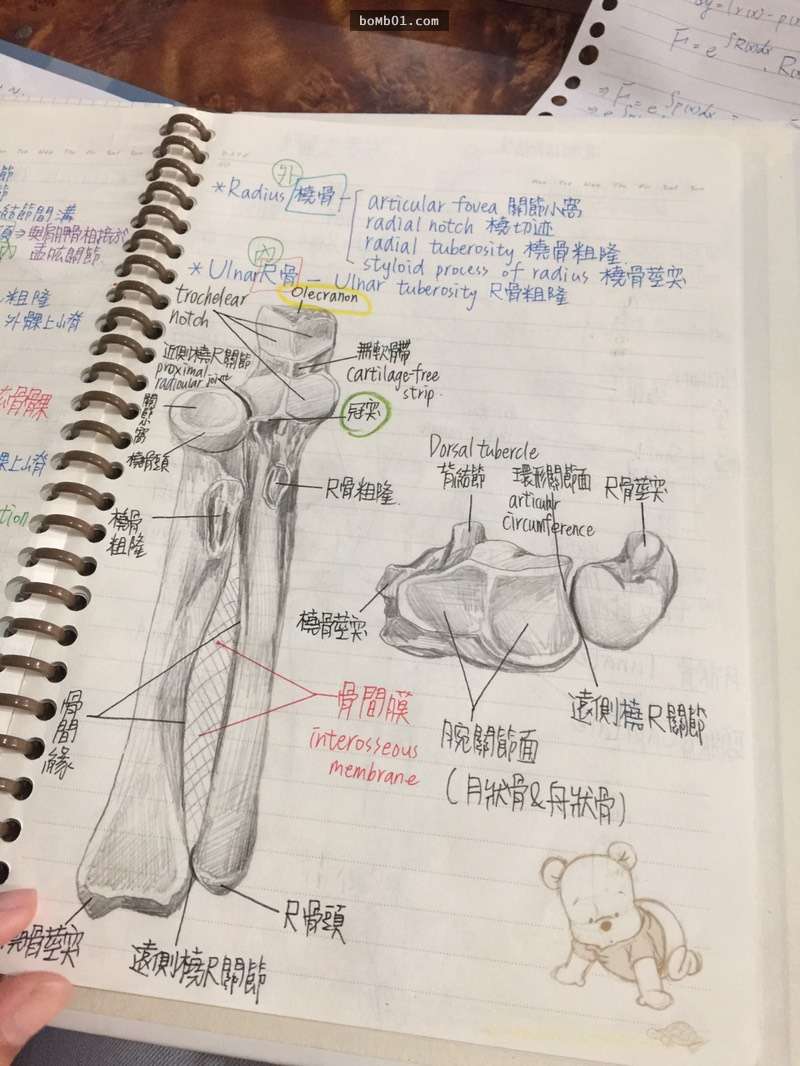 boMb01.com
結節間溝
與肩胛骨相接於
盂肱關節
粗隆
外髁上小脊
髁上小脊
外
*Radius 橈骨
articular fovea 關節小窩
radial notch 橈切迹
radial tuberosity 橈骨粗隆
styloid process of radius 橈骨莖突
內
*Ulnar 尺骨 — Ulnar tuberosity 尺骨粗隆
Olecranon
trochelear
notch
無軟骨帶
cartilage-free
strip.
近側橈尺關節
proximal
radioular joint
冠突
關節窩
橈骨頭
尺骨粗隆
橈骨
粗隆
Dorsal tubercle
背結節
環形關節面
articular
circumference
尺骨莖突
橈骨莖突
遠側橈尺關節
腕關節面
(月狀骨&舟狀骨)
骨間膜
interosseous
membrane
骨間緣
尺骨頭
骨莖突
遠側橈尺關節